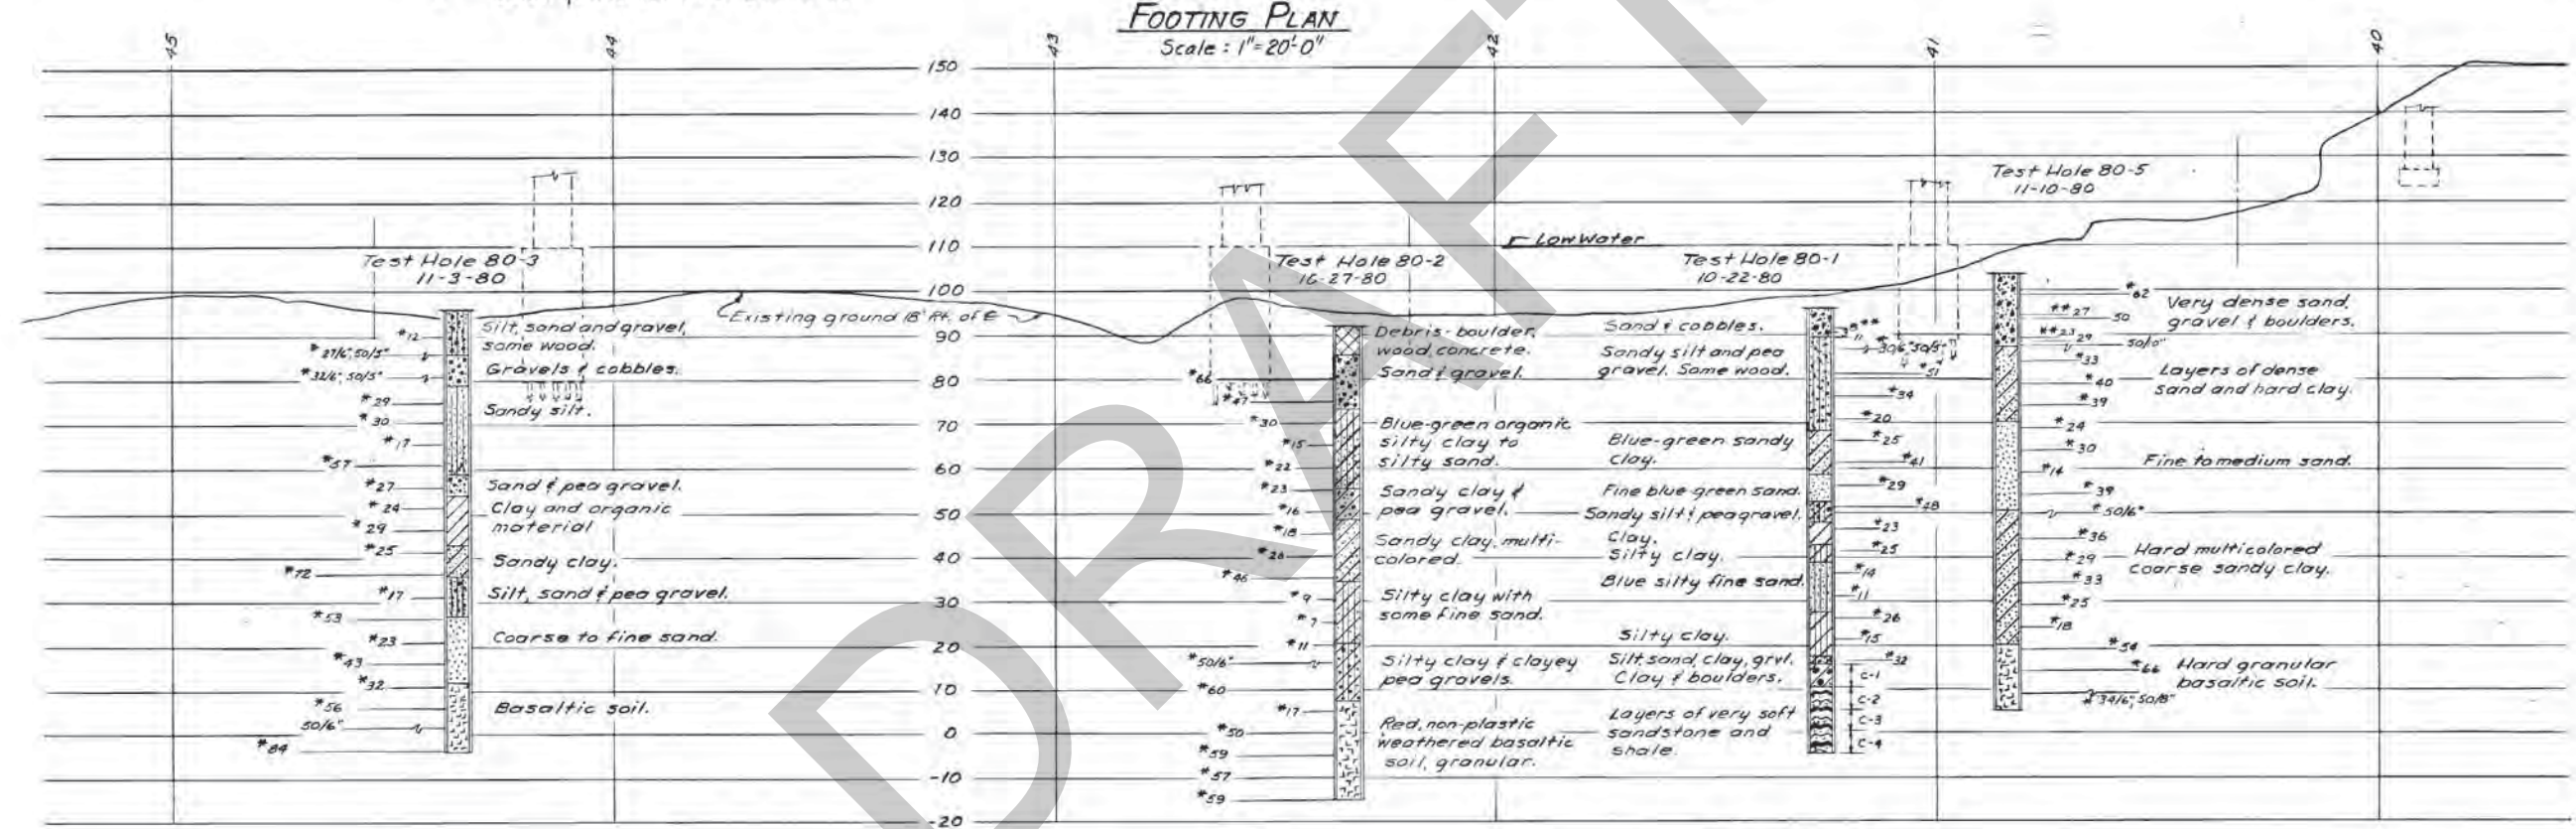 FOOTING PLAN
Scale : 1"=20'-0"
45
44
43
42
41
40
150
140
130
120
110
100
90
80
70
60
50
40
30
20
10
0
-10
-20
DRAFT
Test Hole 80-3
11-3-80
*12
*27/6", 50/5"
*32/6", 50/5"
*29
*30
*17
*57
*27
*24
*29
*25
*72
*17
*53
*23
*43
*32
*56
50/6"
*84
Silt, sand and gravel,
some wood.
Gravels & cobbles.
Sandy silt.
Sand & pea gravel.
Clay and organic
material
Sandy clay.
Silt, sand & pea gravel.
Coarse to fine sand.
Basaltic soil.
Existing ground 18' Rt. of ℄
Test Hole 80-2
*66
*47
*30
*15
*22
*23
*16
*18
*28
*46
*9
*7
*11
*50/6"
*60
*17
*50
*59
*57
*59
Debris-boulder,
wood, concrete.
Sand & gravel.
Blue-green organic
silty clay to
silty sand.
Sandy clay &
pea gravel.
Sandy clay, multi-
colored.
Silty clay with
some fine sand.
Silty clay & clayey
pea gravels.
Red, non-plastic
weathered basaltic
soil, granular.
Low Water
Test Hole 80-1
10-22-80
Sand & cobbles.
Sandy silt and pea
gravel. Some wood.
Blue-green sandy
clay.
Fine blue-green sand.
Sandy silt & pea gravel.
Clay.
Silty clay.
Blue silty fine sand.
Silty clay.
Silt, sand, clay, grvl.
Clay & boulders.
Layers of very soft
sandstone and
shale.
*51
*34
*20
*25
*41
*29
*48
*23
*25
*14
*11
*26
*15
*32
C-1
C-2
C-3
C-4
Test Hole 80-5
11-10-80
*62
**27
50
**23
29
50/0"
*33
*40
*39
*24
*30
*14
*39
*50/6"
*36
*29
*33
*25
*18
*54
*66
*34/6", 50/8"
Very dense sand,
gravel & boulders.
Layers of dense
sand and hard clay.
Fine to medium sand.
Hard multicolored
coarse sandy clay.
Hard granular
basaltic soil.